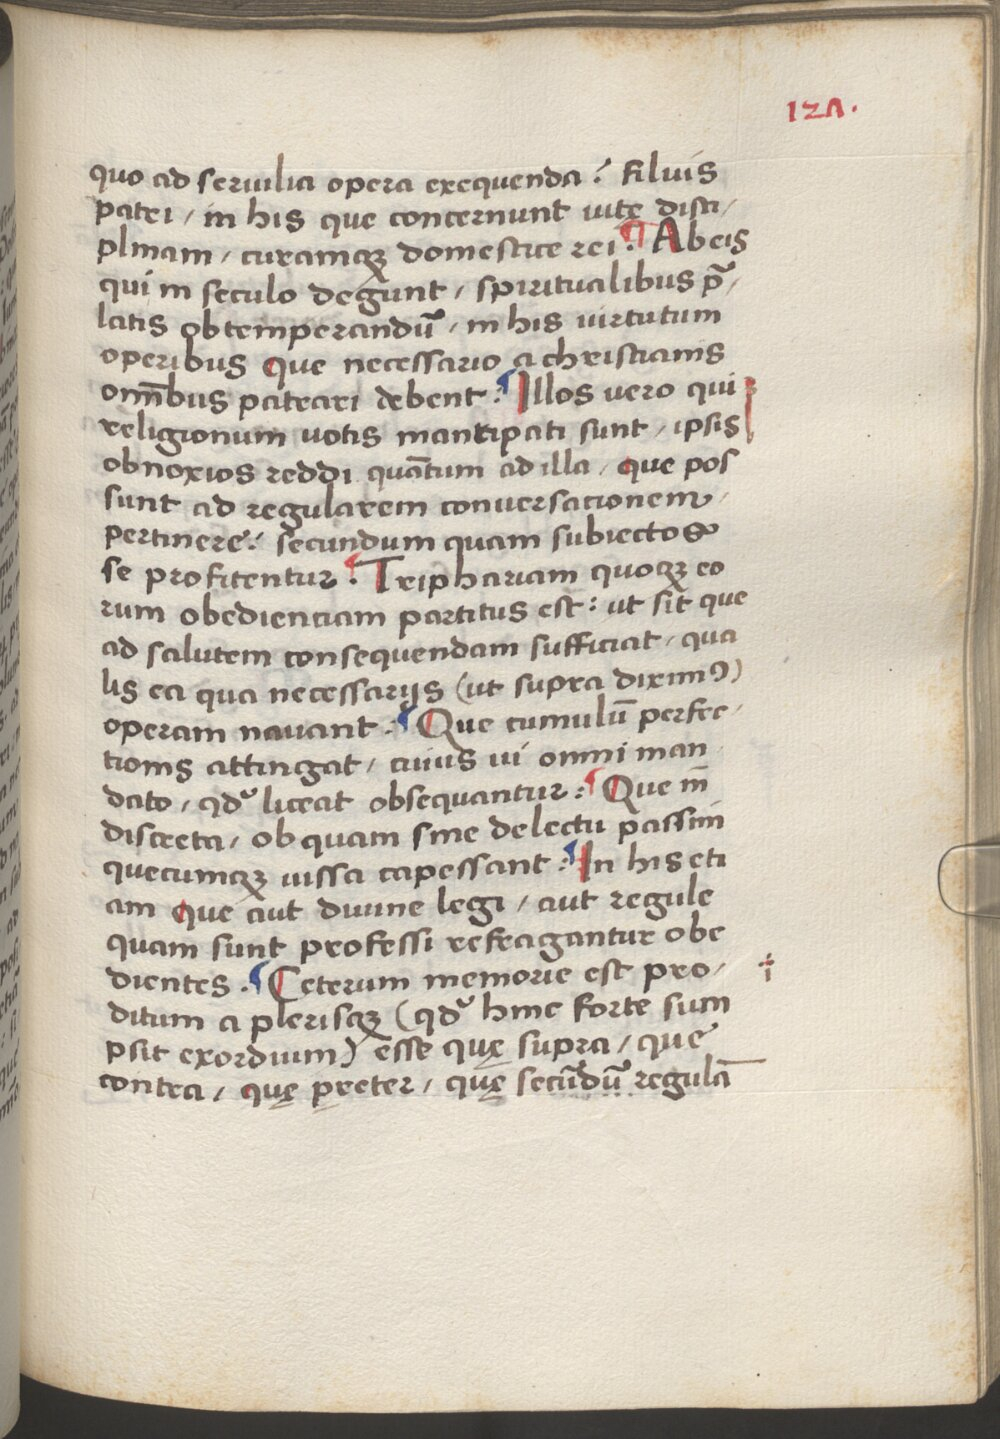 127.
quo ad seruilia opera exequenda: filiuis
patri / in his que concernunt uite disci/
plinam / curamqꝫ domestice rei. ¶ Ab eis
qui in seculo degunt / spiritualibus p̄/
latis obtemperandū / in his uirtutum
operibus que necessario a christianis
omībus patrari debent: ¶ Illos vero qui
religionum uotis mancipati sunt / ipsis
obnoxios reddi quātum ad illa / que pos
sunt ad regularem conuersacionem /
pertinere: secundum quam subiectos
se profitentur. ¶ Tripharıam quoqꝫ eo
rum obedienciam partitus est: ut sit que
ad salutem consequendam sufficiat / qua
lis ea qua necessarijs (ut supra diximꝰ)
operam nauant: ¶ Que cumulū perfec/
tionis attingat / cuius ui omni man
dato / qdͣ liceat obsequantur: ¶ Que in̄
discreta / ob quam sine delectu passim
quecumqꝫ iussa capessant: ¶ In his eti
am que aut diuine legi / aut regule
quam sunt professi refragantur obe
dientes. ¶ Ceterum memorie est pro/
ditum a plerisqꝫ (qdͣ hinc forte sum
psit exordium) esse quę supra / que
contra / quę pręter / quę secūdū regulā